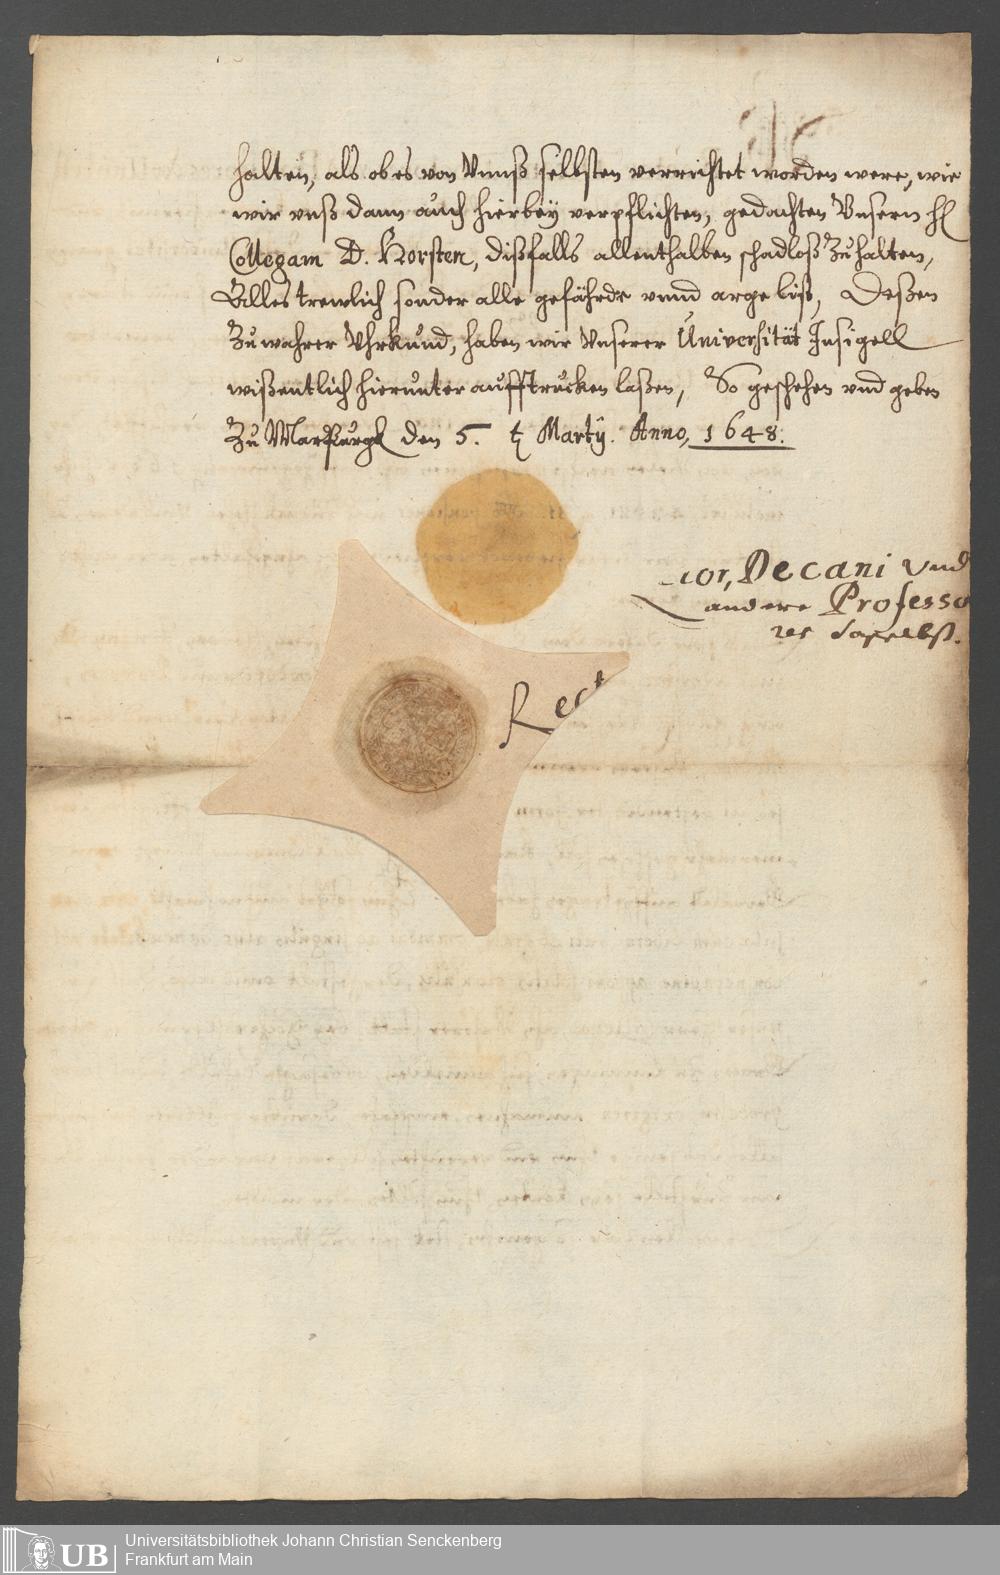 halten, als ob es von Vnnß selbsten verrichtet worden were, wie
wir vnß dann auch hierbey verpflichten, gedachten Vnsern H
Collegam D. Horsten, dißfalls allenthalben schadloß zu halten,
Alles trewlich sonder alle gefährde vnnd arge list, Deßen
Zu wahrer Vhrkund, haben wir Vnserer Universität Insigell
wißentlich hierunter aufftrucken laßen, So geschehen vnd geben
Zu Marpurgk den 5. t Martij. Anno, 1648.
Rect
or, Decani Vnd
andere Professo
res daselbst.
UB Universitätsbibliothek Johann Christian Senckenberg
Frankfurt am Main